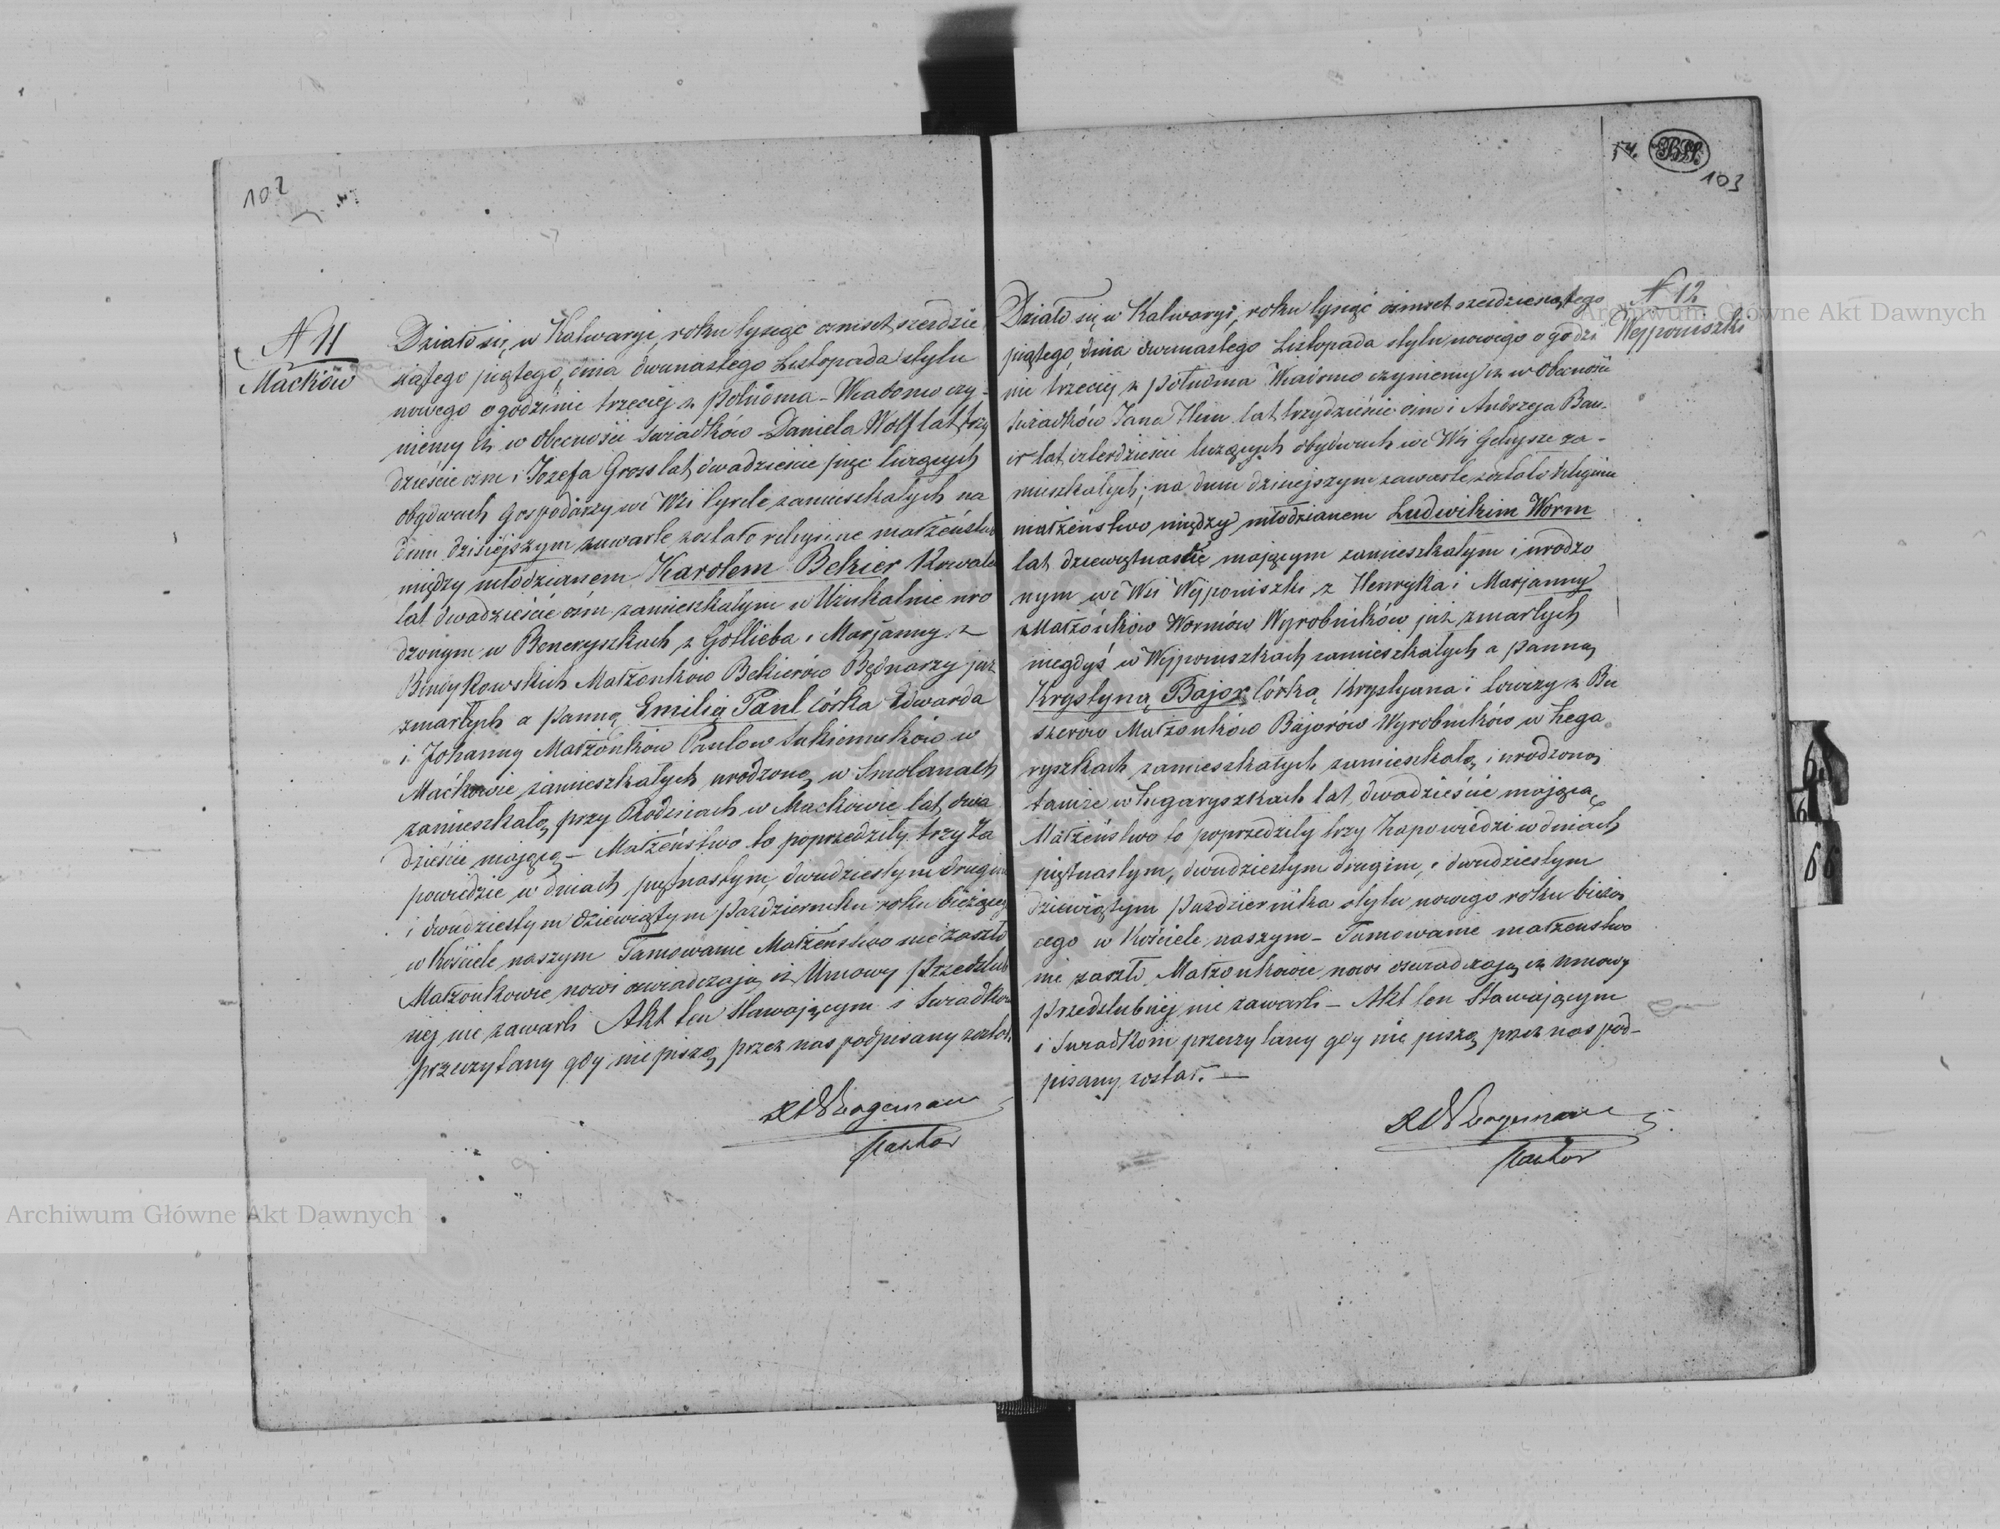 102
N 11
Maćków
Działo się w Kalwaryi, roku tysiąc osmset szesdzie
siątego piątego, dnia dwunastego Listopada stylu
nowego o godzinie trzeciej z południa – Wiadomo czy-
niemy iż w obecności świadków Daniela Wolf lat trzy
dzieście osm i Józefa Gross lat dwadzieście pięć liczących
obydwach Gospodarzy we Wsi zamieszkałych na
dniu dzisiejszym zawarte zostało religijne małżeństwo
między młodzianem Karolem Bekier Kowalem
lat dwadzieście ośm zamieszkałym w uro
dzonym w Beneryszkach z Gottlieba i Marjanny z
Małżonków Bekierów Bednarzy już
zmarłych a panną Emilią Paul córka Edwarda
i Johanny Małżonków Paulow Sukienników w
Maćkowie zamieszkałych urodzoną w Smolanach
zamieszkałą przy Rodzicach w Mackowie lat dwa
dzieście mającą – Małżeństwo to poprzedziły trzy Za
powiedzie w dniach piętnastym, dwudziestym drugim
i dwudziestym dziewiątym Października roku bieżącego
w Kościele naszym Tamowanie Małżeństwa nie zaszło
Małżonkowie nowi oświadczają iż Umowy przedślub
nej nie zawarli Akt ten Stawającym i Swiadkom
przeczytany gdy nie piszą przez nas podpisany został.
Pastor
54.
103
N 12
Wejponiszki
Działo się w Kalwaryi, roku tysiąc ośmset szesdziesiątego
piątego, dnia dwunastego Listopada stylu nowego o godzi
nie trzeciej z południa Wiadomo czynimy iż w obecności
świadków Jana lat trzydzieście ośm i Andrzeja Bau-
er lat czterdzieści liczących obydwuch we Wsi za-
mieszkałych; na dniu dzisiejszym zawarte zostało religijne
małżeństwo między młodzianem Ludwikiem Worm
lat dziewiętnaście mającym zamieszkałym i urodzo
nym we Wsi Wejponiszki z Henryka i Marjanny
Małżonków Wormów Wyrobników już zmarłych
niegdyś w Wejponiszkach zamieszkałych a panną
Krystyną Bajor córką Krystyana i Lowizy z Bu
szerów Małżonków Bajorów Wyrobników w Zega
ryszkach zamieszkałych zamieszkałą i urodzoną
tamże w Zegaryszkach lat dwadzieście mającą
Małżeństwo to poprzedziły trzy Zapowiedzi w dniach
piętnastym, dwudziestym drugim, i dwudziestym
dziewiątym Października stylu nowego roku bieżą
cego w Kościele naszym – Tamowanie małżenstwa
nie zaszło Małżonkowie nowi oświadczają iż umowy
przedślubnej nie zawarli – Akt ten Stawającym
i Świadkom przeczytany gdy nie piszą przez nas pod-
pisany został. –
Pastor
Archiwum Główne Akt Dawnych
Archiwum Główne Akt Dawnych